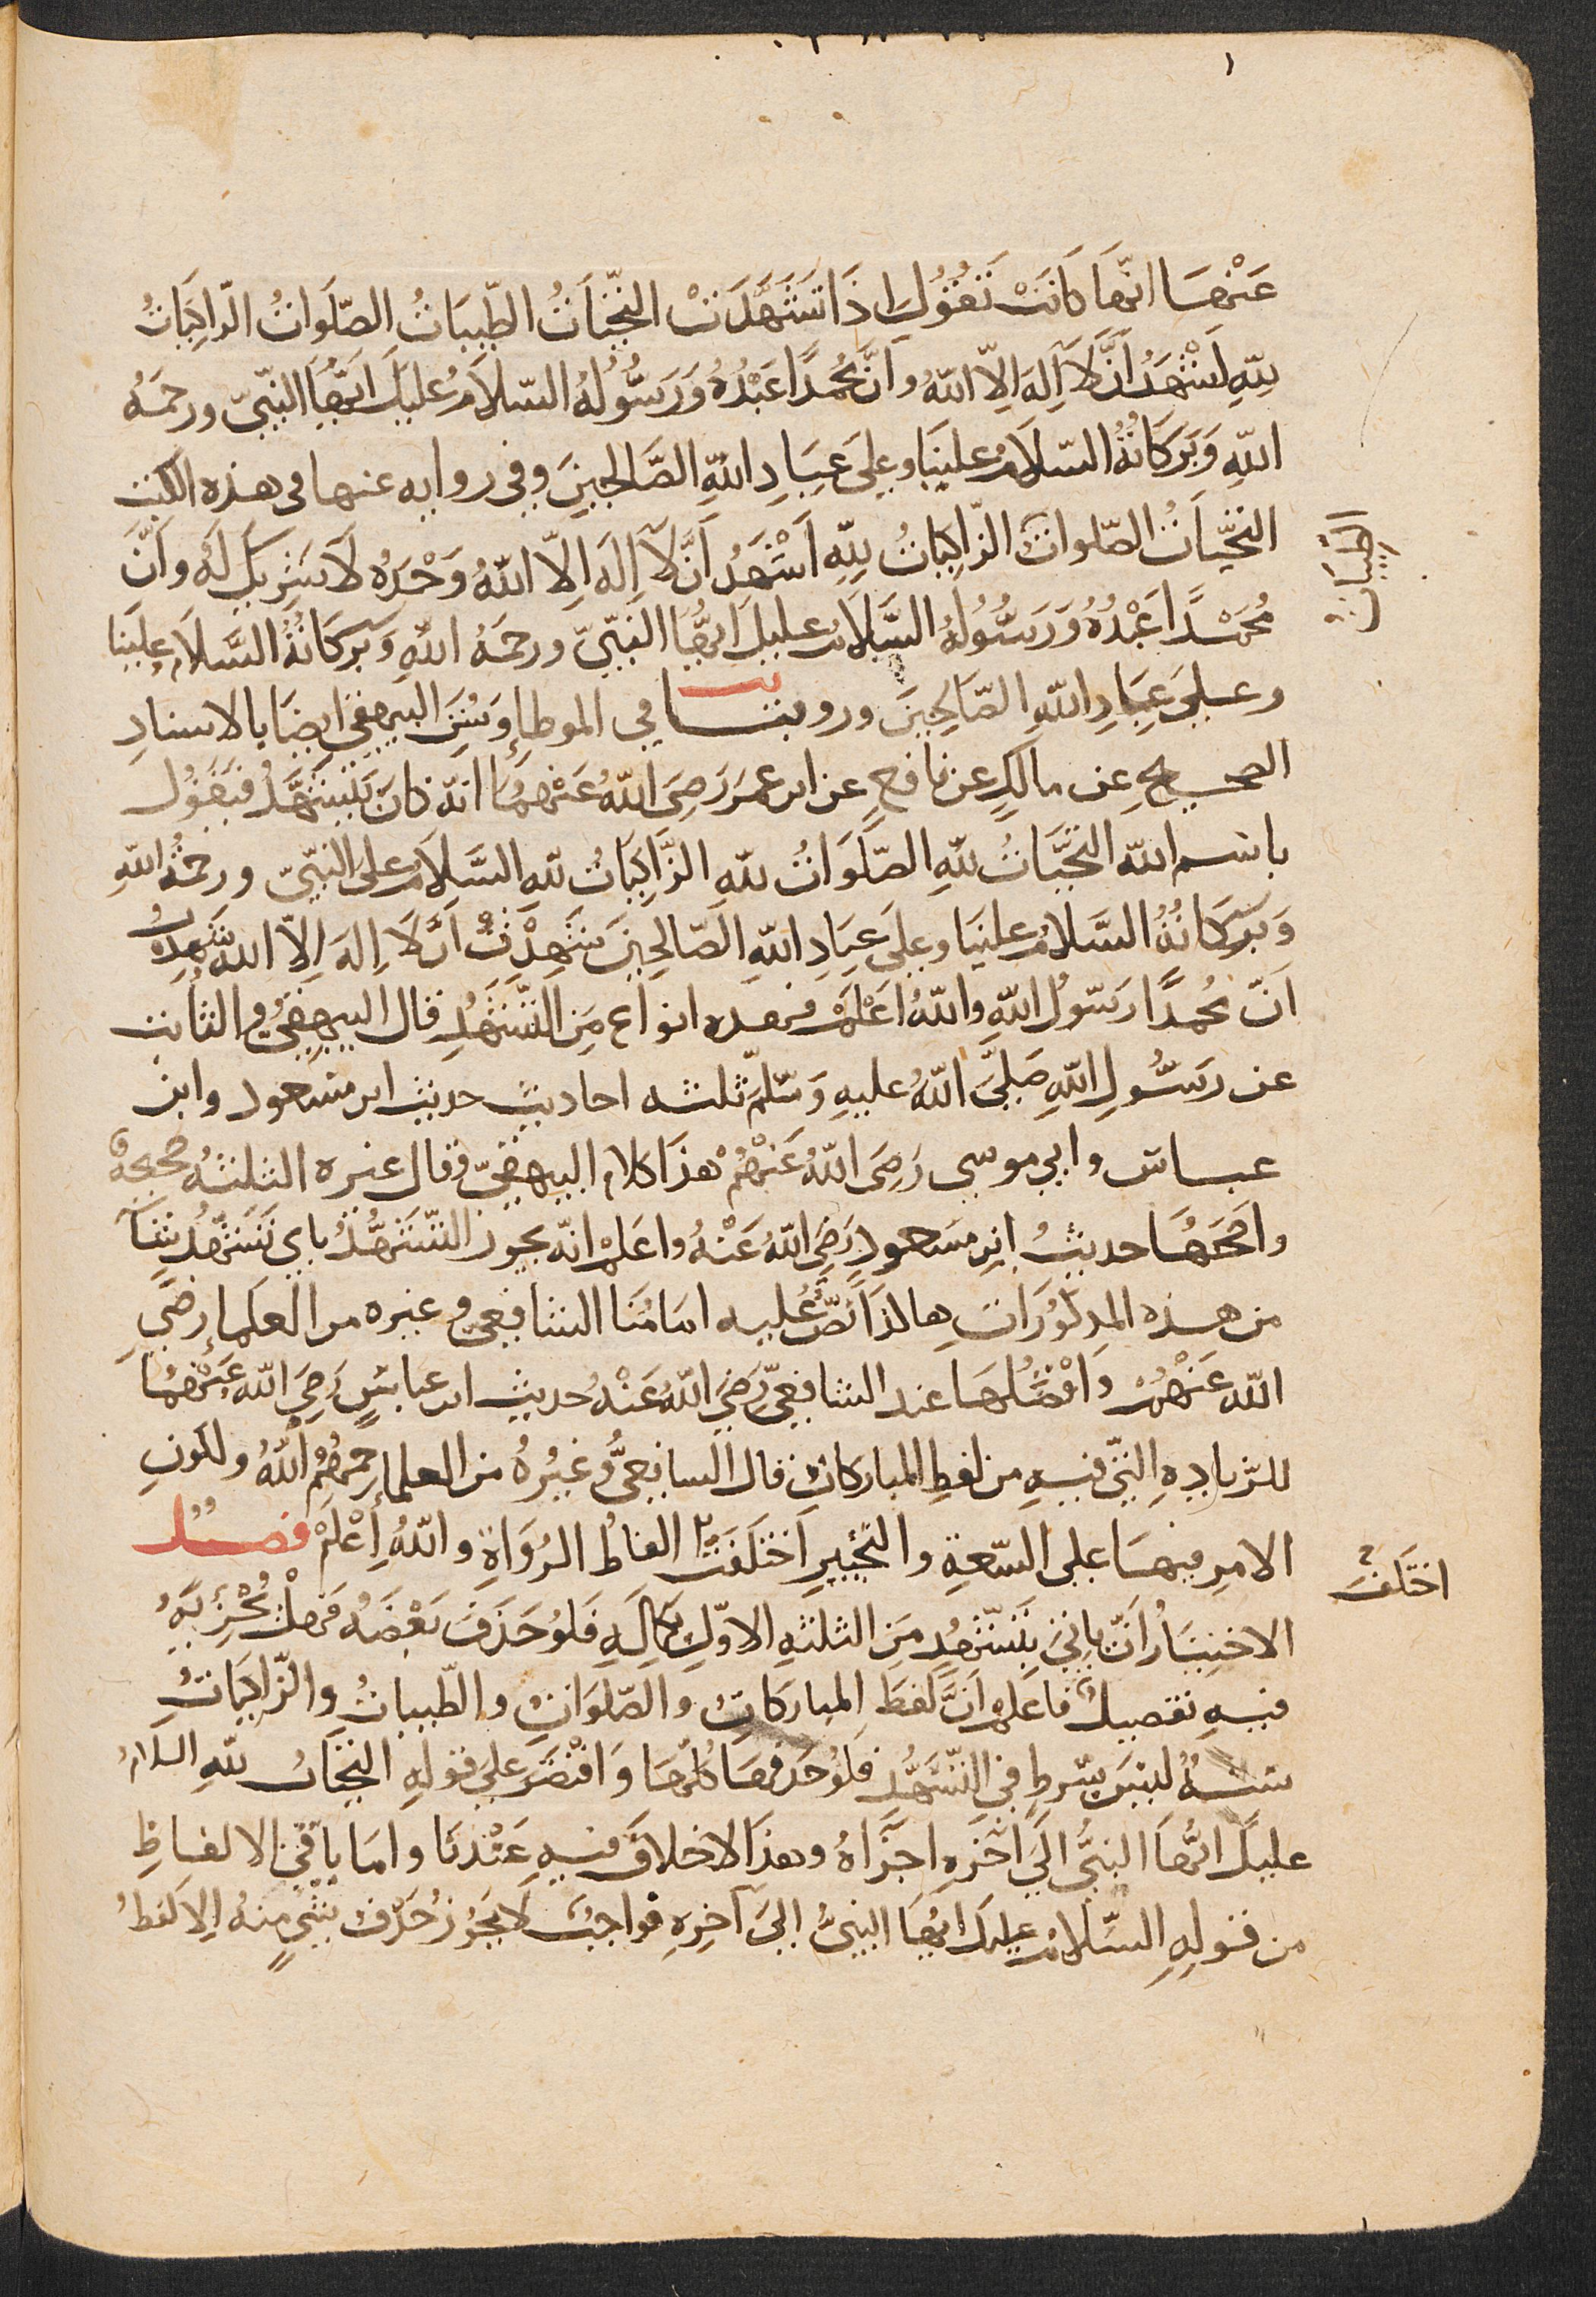 عَنْهَا انّهَا كَانَتْ تَقُوُلُ اِذَا تَشَهَّدَتْ التّحِيّاَتُ الطّيِبَاتُ الصّلَوَاتُ الزّاكِيَاتُ
لِلّهِ اَشْهَدُ اَنَّ لَا اِلَهَ اِلّا اللهُ وانَّ مُحَمدًا عَبْدُهُ وَرَسُولُهُ السّلَامُ عليكَ ايّهَا النّبيّ ورحمَهُ
اللهِ وَبَرَكَاتُهُ السّلَامُ علينَا وعلىَ عِبَادِ اللهِ الصَّالحِينَ وفى روايه عنها فى هذه الكتب
التحّيَاتُ الصّلواتُ الزّاكِيَاتُ لِلّهِ اَشْهَدُ اَنَّ لَا اِلَهَ اِلّا اللهُ وَحْدَهُ لَا شَرِيكَ لَهُ وانَّ
الطيبات
مُحَمّدًا عَبْدُهُ وَرَسُولُهُ السَّلَامُ عليكَ ايُّهَا النَبِيّ ورحمَهُ اللهِ وَبَركَاتُهُ السَّلَامُ علينَا
وعلىَ عِبَادِ اللهِ الصّالحِينَ وروينا في الموطإ وَسُنَنِ البيهقىِ ايضَا بالاسنادِ
الصحيحِ عن مالكٍ عن نافعٍ عن ابن عمَرَ رَضِىَ اللهُ عَنْهُمَا انّه كانَ يَتَشَهَّدُ فَيَقُول
باسم الله التحيَّاتُ للّهِ الصّلَوَاتُ للّهِ الزَّاكِيَاتُ للّهِ السَّلَامُ علىَ النبيّ ورحمُة اللهِ
وَبَرَكَاتُهُ السَّلَامُ علينَا وعلىَ عِبَادِ اللهِ الصّالحِينَ شَهِدْتُ اَنْ لَا اِلَهَ اِلّا اللهُ شَهِدْتُ
انّ مُحمدًا رَسُولُ اللهِ واللهُ اعْلَمْ فهذه انواع مِنَ التّشَهّدِ قال البيهقِىُّ والثابت
عن رسُولِ اللهِ صَلىَّ اللهُ عليهِ وَسَلّمَ ثلثه احاديث حديث ابن مسعود وابن
عباس وابي موسى رَضِىَ اللهُ عَنْهُمْ هذَا كلام البيهقىّ وقال غيره الثلثهُ صحيحَةٌ
واصَحّهَا حديثُ ابنِ مَسعودٍ رَضِىَ اللهُ عَنْهُ واعَلمْ انّه يجوز التّشَهّدُ باى تَشَهّدٍ شَآَ
من هذه المذكُورَاتِ هاكذَا نَصَّ عُليه امَامُنَا الشافعىّ وغيره من العلمَاء رضىَ
الله عَنْهُمْ وَافْضَلُهَا عند الشافعىّ رَضِىَ اللهُ عَنْهُ حديث ابن عباسٍ رَضِىَ اللهُ عَنْهُمَا
للزّيادِةِ التّى فيهِ من لفظِ المباركات قال الشافِعىُّ وغيْرُهُ من العلماءِ رحمهُمْ اللهُ ولكونِ
الامرِ فيهَا على السّعَةِ والتخَييرِ اَخْتلَفَتْ الفاظُ الرُّوَاةِ واللهُ اعْلَمْ فصل
اختَلفَ
الاختِيَارُ انّ ياتىَ بِتَشّهّدٍ مِنَ الثلثهِ الاوّلِ بكمالِهِ فلوُ حَذَفَ بَعْضَهُ فهلْ يُجْزِيهُ
فيه تفصيلٌ فاعَلمْ انَّ لَفظَ المباركَاتِ والصّلوَاتِ والطّيباتُ والزّاكِيَاتُ
سنهٌ ليسَ بشرطٍ فى التّشَهُّدِ فلوُ حَذفهَا كلُّهَا وَاقْتصَرَ علىَ قولهِ التحيّاتُ للّهِ السلَامُ
عليكَ ايّهَا النبيُّ الىَ آخرهِ اجزَاهُ وهذَا لا خلافَ فيهِ عندَنَا وامَا باقىِ الالفاظِ
من قولِهِ السّلَامُ عليكَ ايهَا النبىُّ الىَ آخِرِهِ فواجبٌ لا يجُوز حُذّفُ شىءٍ منهُ الِا لَفظُ